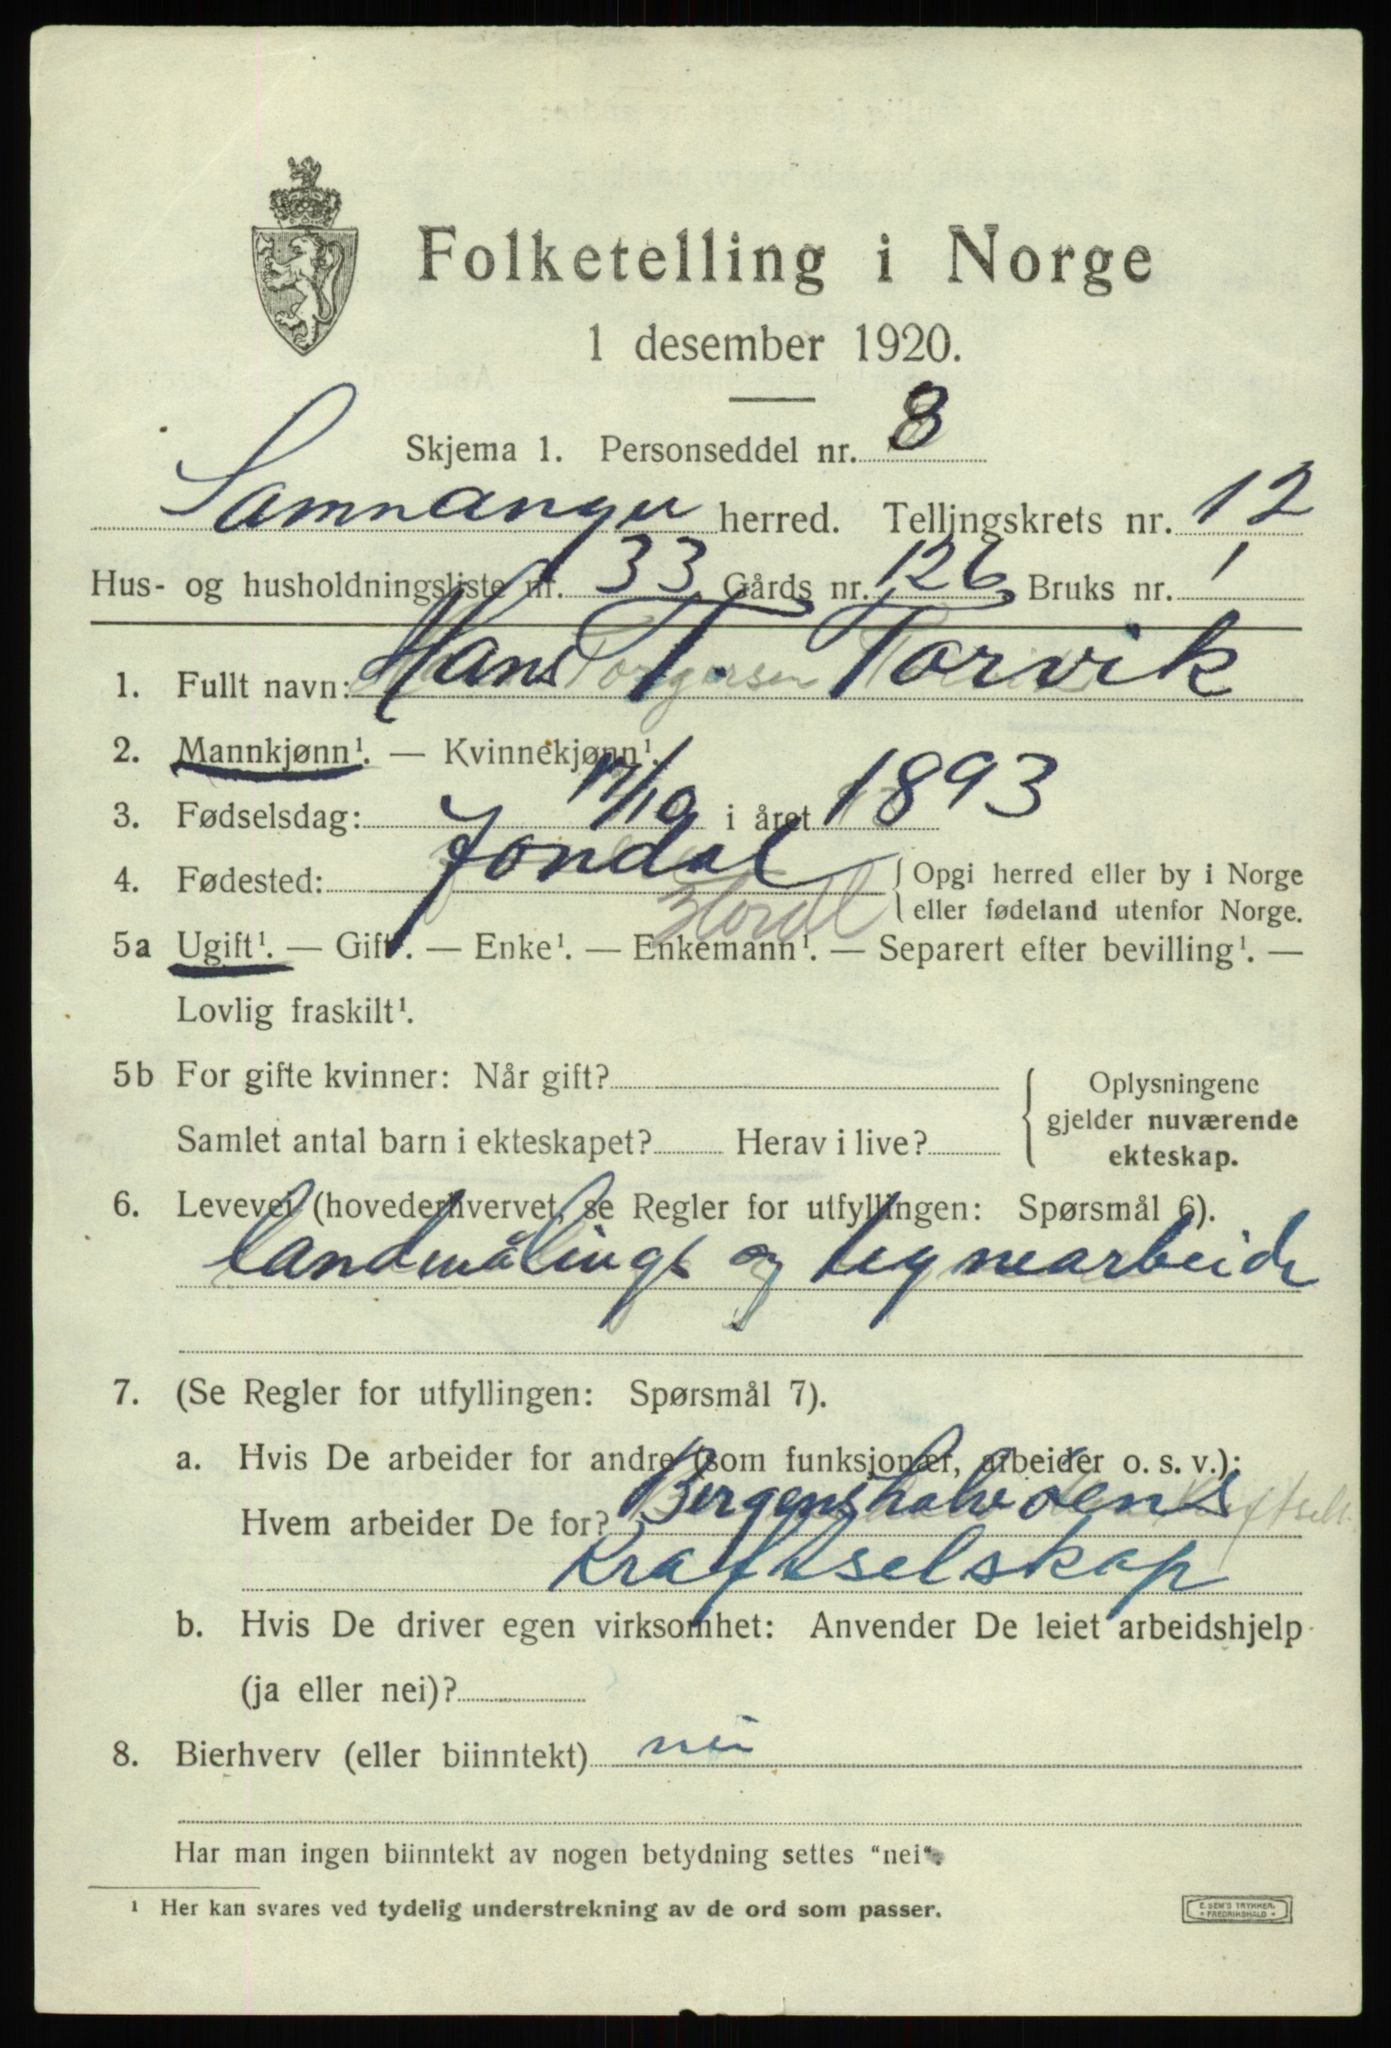 Folketelling i Norge
1 desember 1920.
Skjema 1. Personseddel nr. 8
Samnanger herred. Tellingskrets nr. 12
Hus- og husholdningsliste nr. 33 Gårds nr. 126 Bruks nr. 1
1. Fullt navn: Hans T. Torvik
Torgersen
2. Mannkjønn¹. — Kvinnekjønn¹.
3. Fødselsdag: 17/10 i året 1893
4. Fødested: Jondal { Opgi herred eller by i Norge
eller fødeland utenfor Norge.
Hordl
5a Ugift¹. — Gift¹. — Enke¹. — Enkemann¹. — Separert efter bevilling¹. —
Lovlig fraskilt¹.
5b For gifte kvinner: Når gift? { Oplysningene
gjelder nuværende
Samlet antal barn i ekteskapet? Herav i live?
ekteskap.
6. Levevei (hovederhvervet, se Regler for utfyllingen: Spørsmål 6).
landmålings og tegnearbeide
7. (Se Regler for utfyllingen: Spørsmål 7).
a. Hvis De arbeider for andre (som funksjonær, arbeider o. s. v.):
Hvem arbeider De for? Bergenshalvøens
Kraftselskap
b. Hvis De driver egen virksomhet: Anvender De leiet arbeidshjelp
(ja eller nei)?
8. Bierhverv (eller biinntekt) nei
Har man ingen biinntekt av nogen betydning settes "nei".
¹ Her kan svares ved tydelig understrekning av de ord som passer.
E. SEM'S TRYKKERI
* FREDRIKSHALD *